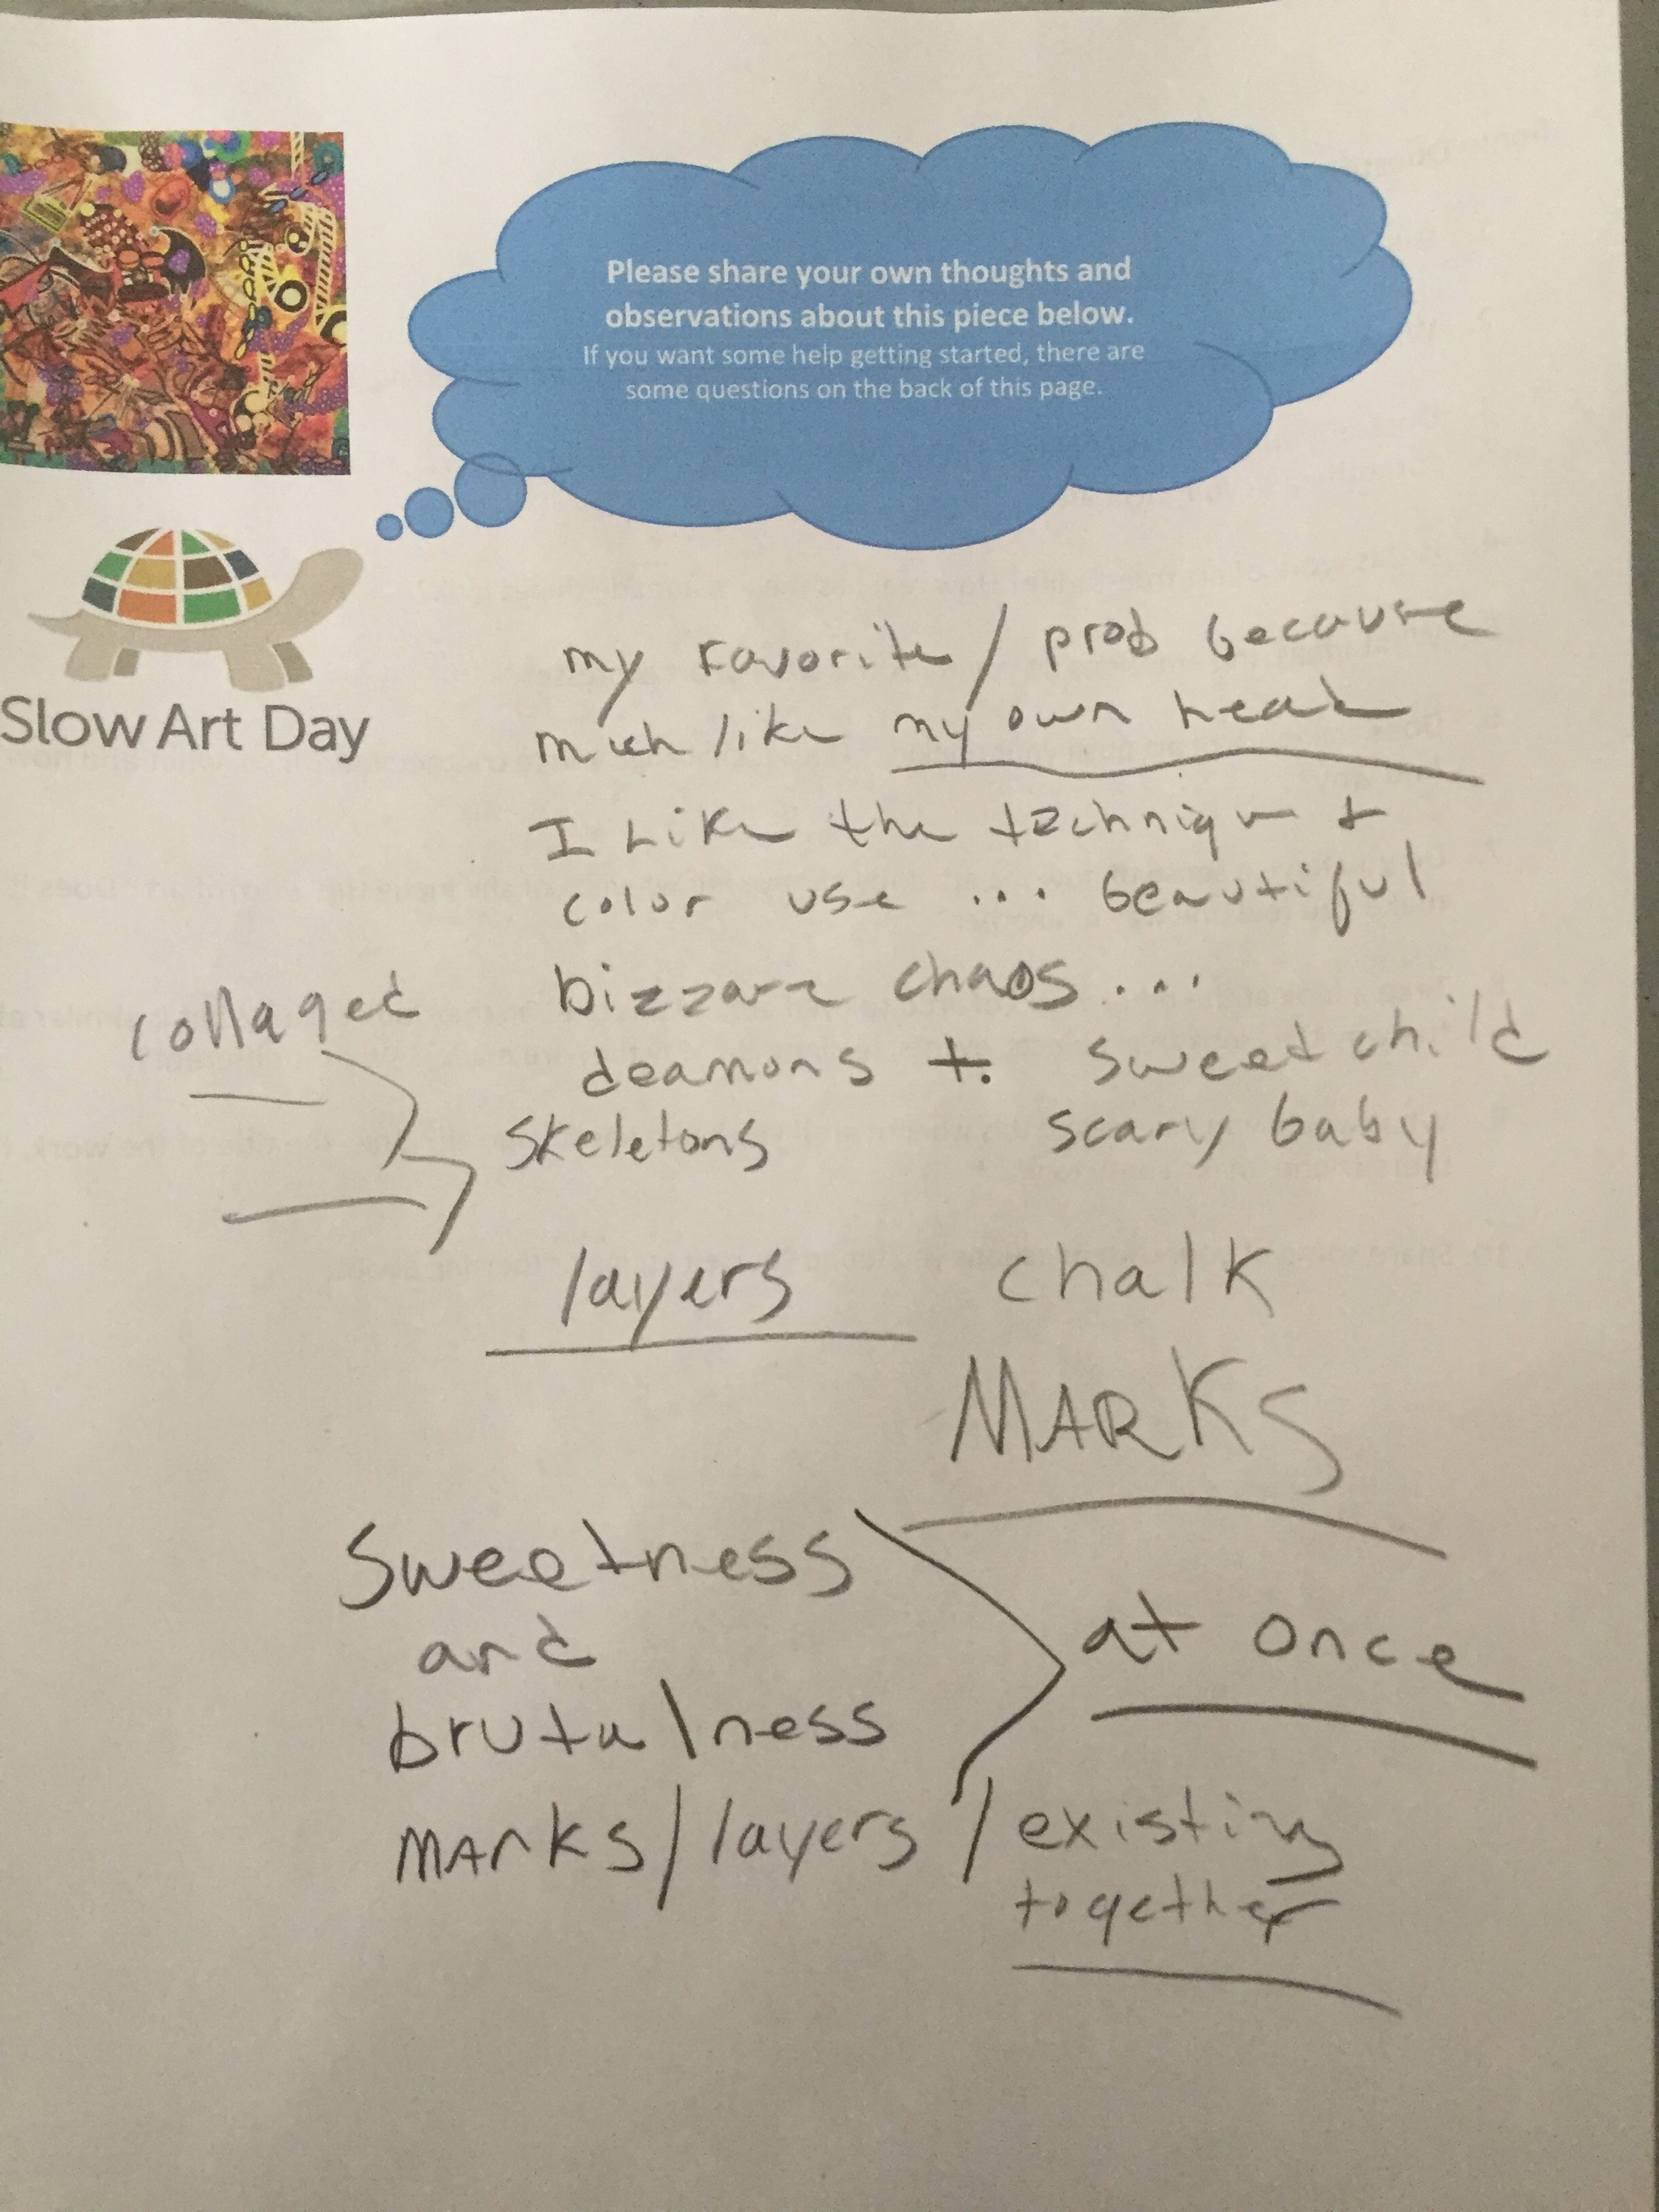 Please share your own thoughts and
observations about this piece below.
If you want some help getting started, there are
some questions on the back of this page.
Slow Art Day
my favorite / prob because
much like my own head
I Like the technique +
color use ... beautiful
bizzare chaos...
collaged
deamons + sweet child
skeletons scary baby
layers chalk
MARKS
Sweetness
and
brutalness
at once
MArks / layers / existing
together